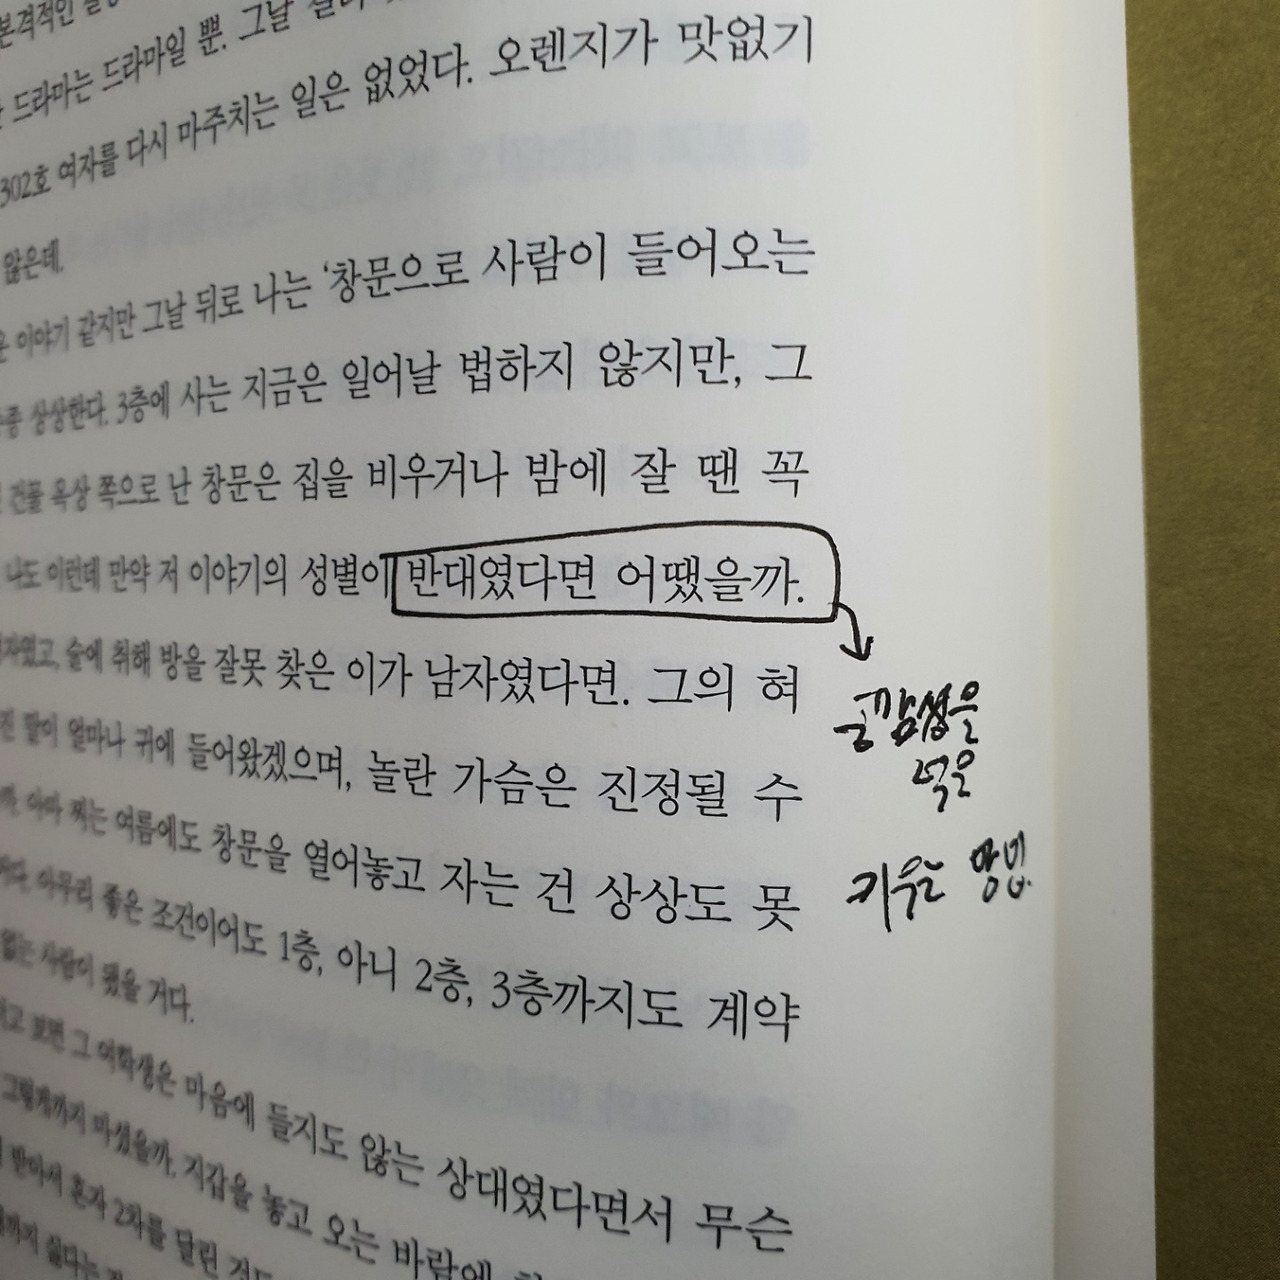 본격적인
드라마는 드라마일 뿐. 그날
302호 여자를 다시 마주치는 일은 없었다. 오렌지가 맛없기
않은데.
이야기 같지만 그날 뒤로 나는 ‘창문으로 사람이 들어오는
종종 상상한다. 3층에 사는 지금은 일어날 법하지 않지만, 그
건물 옥상 쪽으로 난 창문은 집을 비우거나 밤에 잘 땐 꼭
나도 이런데 만약 저 이야기의 성별이 반대였다면 어땠을까.
술에 취해 방을 잘못 찾은 이가 남자였다면. 그의 혀
말이 얼마나 귀에 들어왔겠으며, 놀란 가슴은 진정될 수
아마 찌는 여름에도 창문을 열어놓고 자는 건 상상도 못
아무리 좋은 조건이어도 1층, 아니 2층, 3층까지도 계약
없는 사람이 됐을 거다.
보면 그 여학생은 마음에 들지도 않는 상대였다면서 무슨
그렇게까지 마셨을까. 지갑을 놓고 오는 바람에
받아서 혼자 2차를 달린
공감성을
키우는 방법.